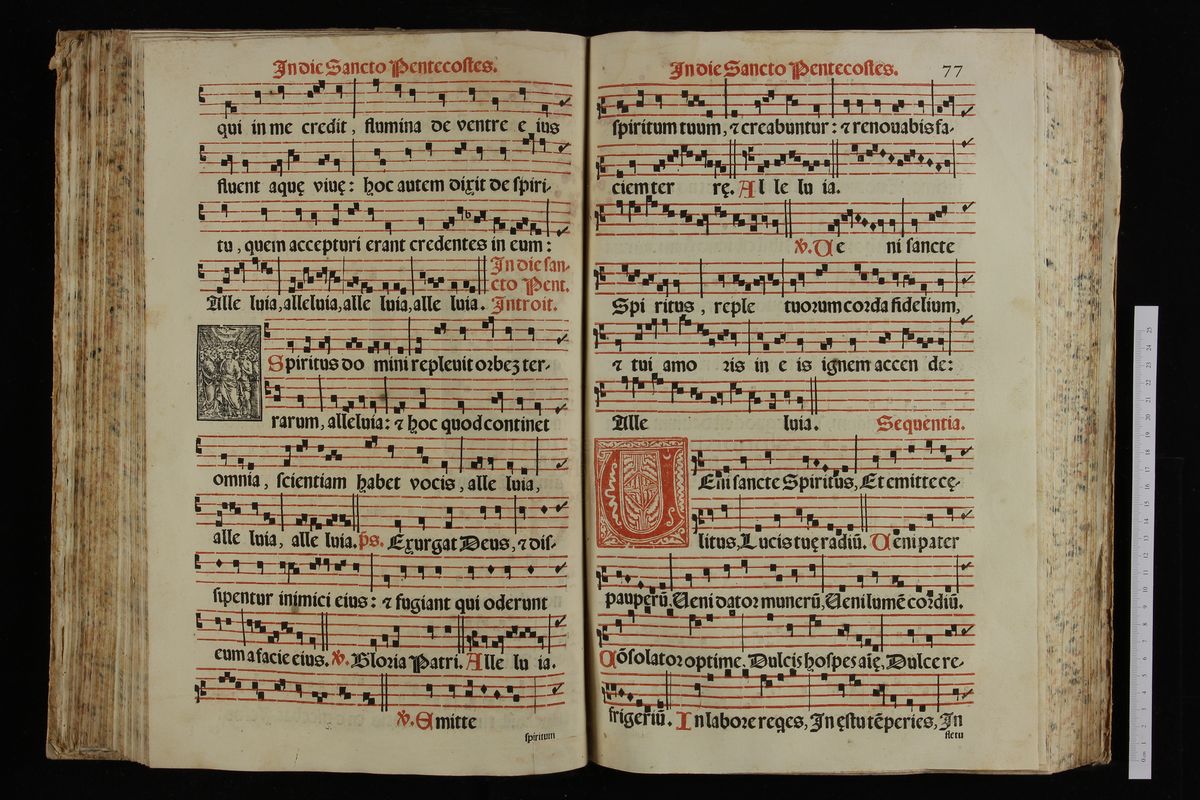 In die Sancto Pentecostes.
qui in me credit, flumina de ventre e ius
fluent aquę viuę: hoc autem dixit de spiri-
tu, quem accepturi erant credentes in eum:
In die san-
cto Pent.
Alle luia, alleluia, alle luia, alle luia. Introit.
Spiritus do mini repleuit orbeʒ ter-
rarum, alleluia: ⁊ hoc quod continet
omnia, scientiam habet vocis, alle luia,
alle luia, alle luia. ps. Exurgat Deus, ⁊ dis-
sipentur inimici eius: ⁊ fugiant qui oderunt
eum a facie eius. ℣. Gloria Patri. Alle lu ia.
℣. Emitte
spiritum
In die Sancto Pentecostes. 77
spiritum tuum, ⁊ creabuntur: ⁊ renouabis fa-
ciem ter rę. Al le lu ia.
℣. Ve ni sancte
Spi ritus, reple tuorum corda fidelium,
⁊ tui amo ris in e is ignem accen de:
Alle luia. Sequentia.
VEni sancte Spiritus, Et emitte cę-
litus, Lucis tuę radiũ. Veni pater
pauperũ, Veni dator munerũ, Veni lumẽ cordiũ.
Cõsolator optime. Dulcis hospes aĩę, Dulce re-
frigeriũ. In labore reqes, In ęstu tẽperies, In
fletu
0 cm 1 2 3 4 5 6 7 8 9 10 11 12 13 14 15 16 17 18 19 20 21 22 23 24 25